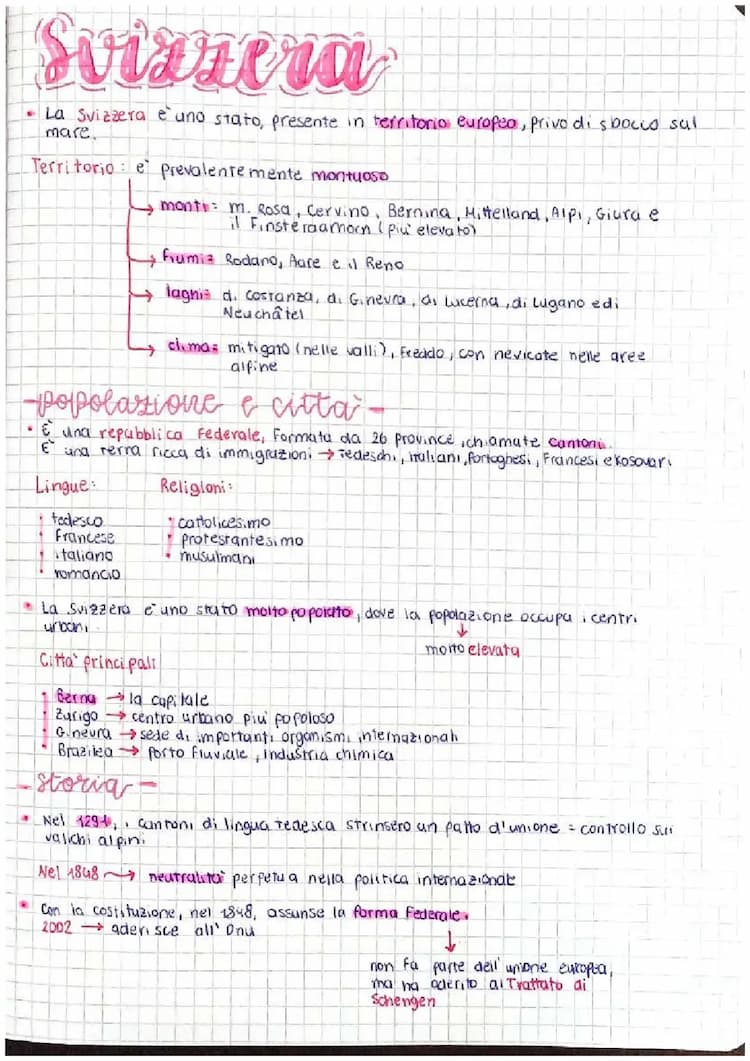 Svizzera
• La Svizzera è uno stato, presente in territorio europeo, privo di sbocco sul
mare.
Territorio: è prevalentemente montuoso
→ monti: m. Rosa, Cervino, Bernina, Mittelland, Alpi, Giura e
il Finsteraamorn (più elevato)
→ fiumi: Rodano, Aare e il Reno
→ laghi: di Costanza, di Ginevra, di Lucerna, di Lugano e di
Neuchâtel
→ clima: mitigato (nelle valli), Freddo, con nevicate nelle aree
alpine
-popolazione e città-
• È una repubblica Federale, Formata da 26 province, chiamate cantoni.
È una terra ricca di immigrazioni → Tedeschi, italiani, Portoghesi, Francesi e kosovari
Lingue: Religioni:
• tedesco • cattolicesimo
• Francese • protestantesimo
• italiano • musulmani
• romancio
• La Svizzera è uno stato molto popolato, dove la popolazione occupa i centri
urbani. ↓
molto elevata
Città principali
• Berna → la capitale
• Zurigo → centro urbano più popoloso
• Ginevra → sede di importanti organismi internazionali
• Brazilea → Porto Fluviale, industria chimica
-storia-
• Nel 1291, i cantoni di lingua tedesca strinsero un patto d'unione = controllo sui
valichi alpini
Nel 1848 → neutralità perpetua nella politica internazionale
• Con la costituzione, nel 1848, assunse la forma Federale.
2002 → aderisce all'Onu ↓
non fa parte dell'unione europea,
ma ha aderito al Trattato di
Schengen